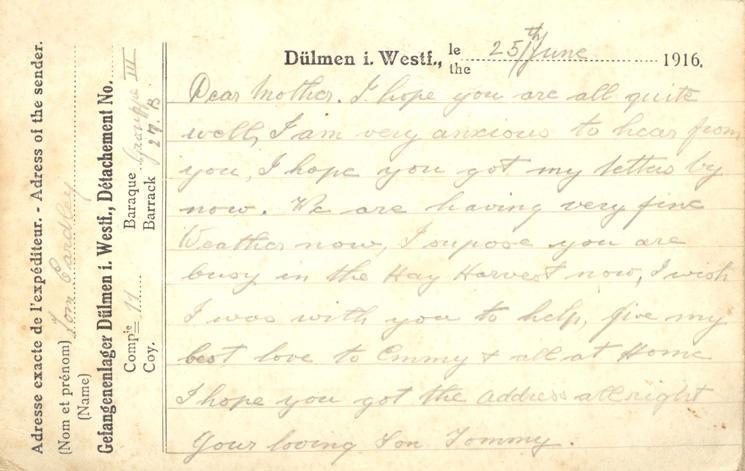 Adresse exacte de l'expéditeur. - Adress of the sender.
(Nom et prénom) Tom
(Name)
Gefangenenlager Dülmen i. Westf., Détachement No.
Compie 11 Baraque Grouppe III
Coy. Barrack 27.B
Dülmen i. Westf., le the 25th June 1916.
Dear Mother. I hope you are all quite
well, I am very anxious to hear from
you, I hope you got my letters by
now. We are having very fine
Weather now, I supose you are
busy in the Hay Harvest now, I wish
I was with you to help, give my
best love to Emmy & all at Home
I hope you got the address allright
Your loving Son Tommy.